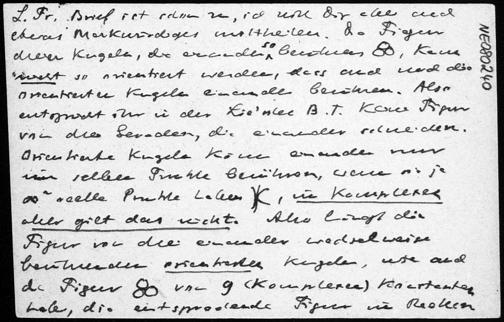 L. Fr.! Brief ist schon zu, ich will Dir aber noch
etwas Merkwürdiges mittheilen. Die Figur
dreier Kugeln, die einander so berühren, kann
nicht so orientiert werden, dass auch noch die
orientierten Kugeln einander berühren. Also
entspricht ihr in der Lie'schen B.T. keine Figur
von drei Geraden, die einander schneiden.
Orientierte Kugeln können einander nur
im selben Punkte berühren, wenn sie je
∞² reelle Punkte haben, im Komplexen
aber gilt das nicht. Also hängt die
Figur von drei einander wechselweise
berührenden orientierten Kugeln, wie auch
die Figur von 9 (komplexen) Konstanten
ab, die entsprechende Figur im Reellen
NE080240